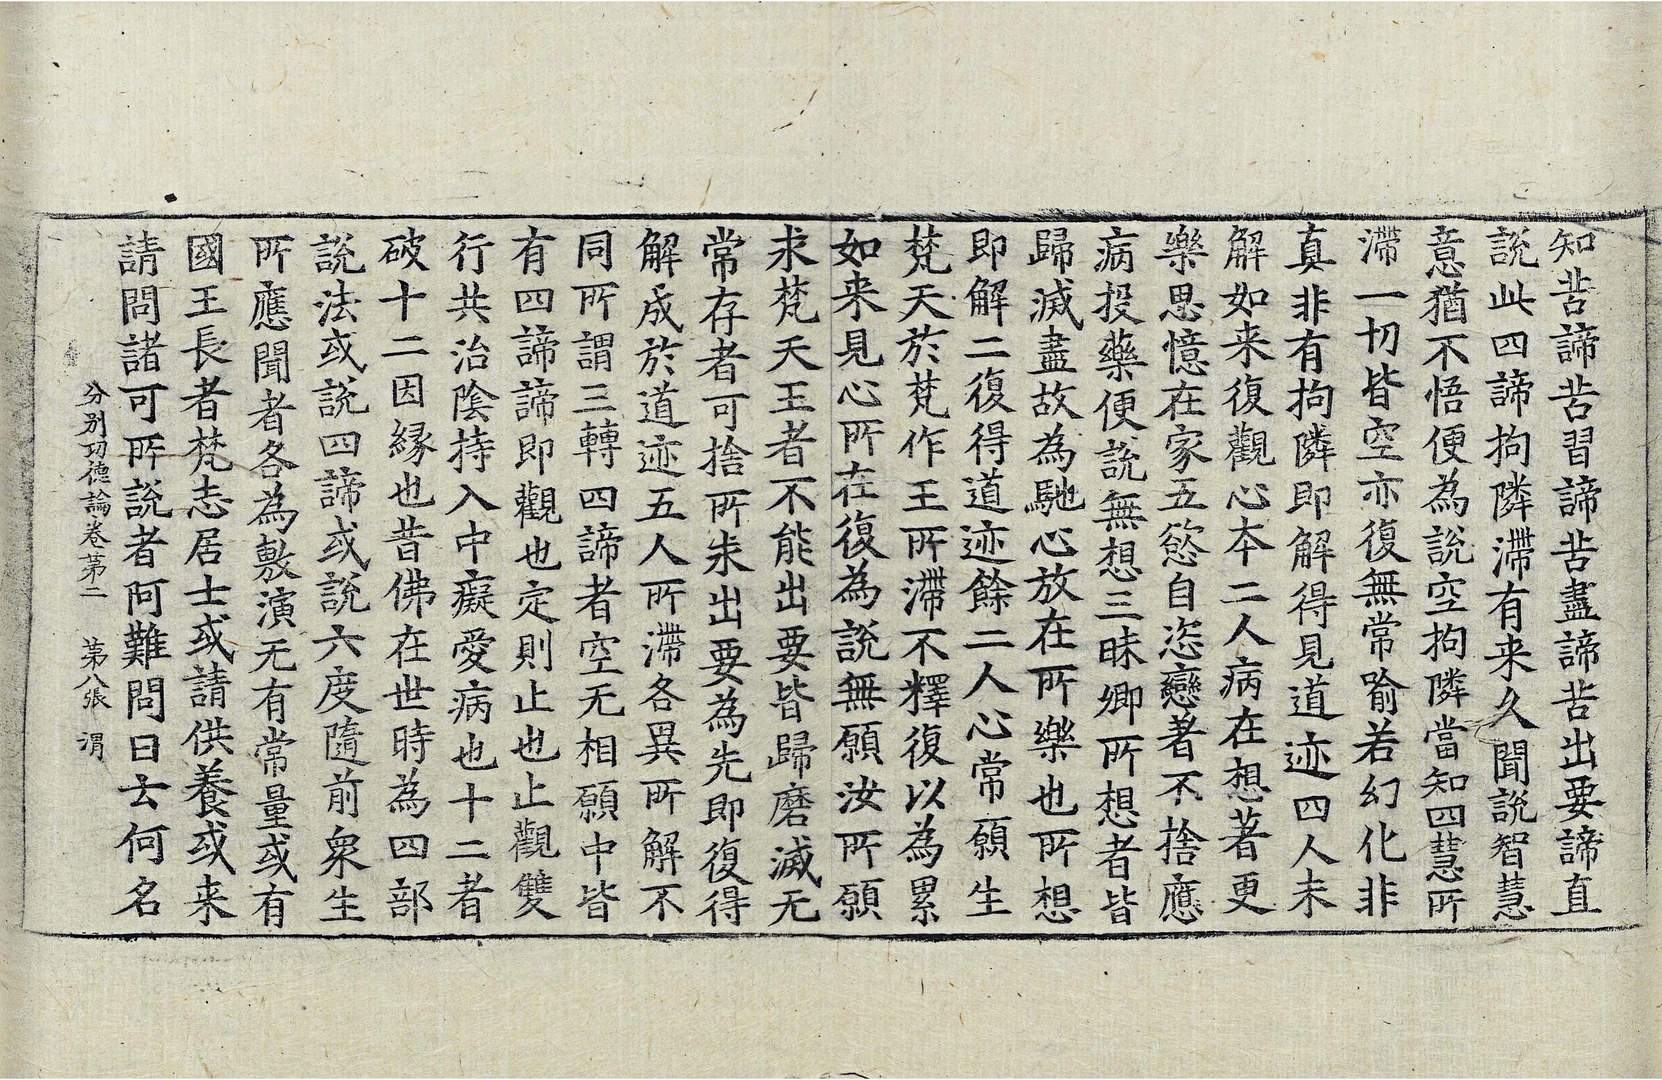 知苦諦苦習諦苦盡諦苦出要諦直
說此四諦拘隣滯有来久聞說智慧
意猶不悟便為說空拘隣當知四慧所
滯一切皆空亦復無常喻若幻化非
真非有拘隣即解得見道迹四人未
解如来復觀心本二人病在想著更
樂思憶在家五慾自恣戀著不捨應
病投藥便說無想三昧卿所想者皆
歸滅盡故為馳心放在所樂也所想
即解二復得道迹餘二人心常願生
梵天於梵作王所滯不釋復以為累
如来見心所在復為說無願汝所願
求梵天王者不能出要皆歸磨滅无
常存者可捨所求出要為先即復得
解成於道迹五人所滯各異所解不
同所謂三轉四諦者空无相願中皆
有四諦諦即觀也定則止也止觀雙
行共治陰持入中癡愛病也十二者
破十二因縁也昔佛在世時為四部
說法或說四諦或說六度隨前衆生
所應聞者各為敷演无有常量或有
國王長者梵志居士或請供養或来
請問諸可所說者阿難問曰云何名
分別功德論卷第二 第八張 渭